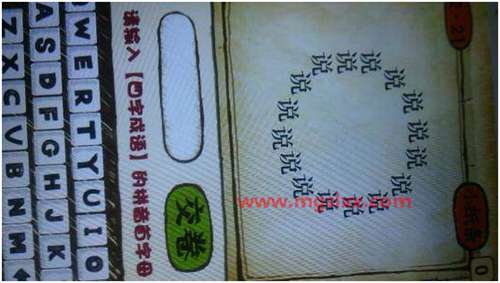 21
说说说说说说说说说说说说说说说说
交卷
请输入【四字成语】的拼音首字母
QWERTYUIO
ASDFGHJK
ZXCVBNM
0